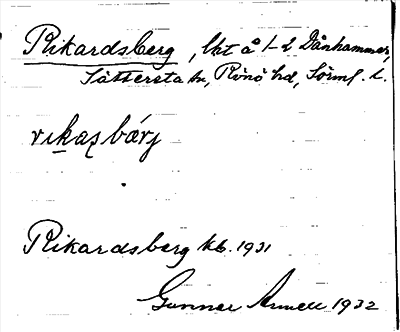 Rikardsberg, lht å 1-2 Dånhammer,
Sättersta sn, Rönö hd, Sörml. l.
rikaʂbærj
Rikardsberg kb. 1931
Gunnar Arnell 1932